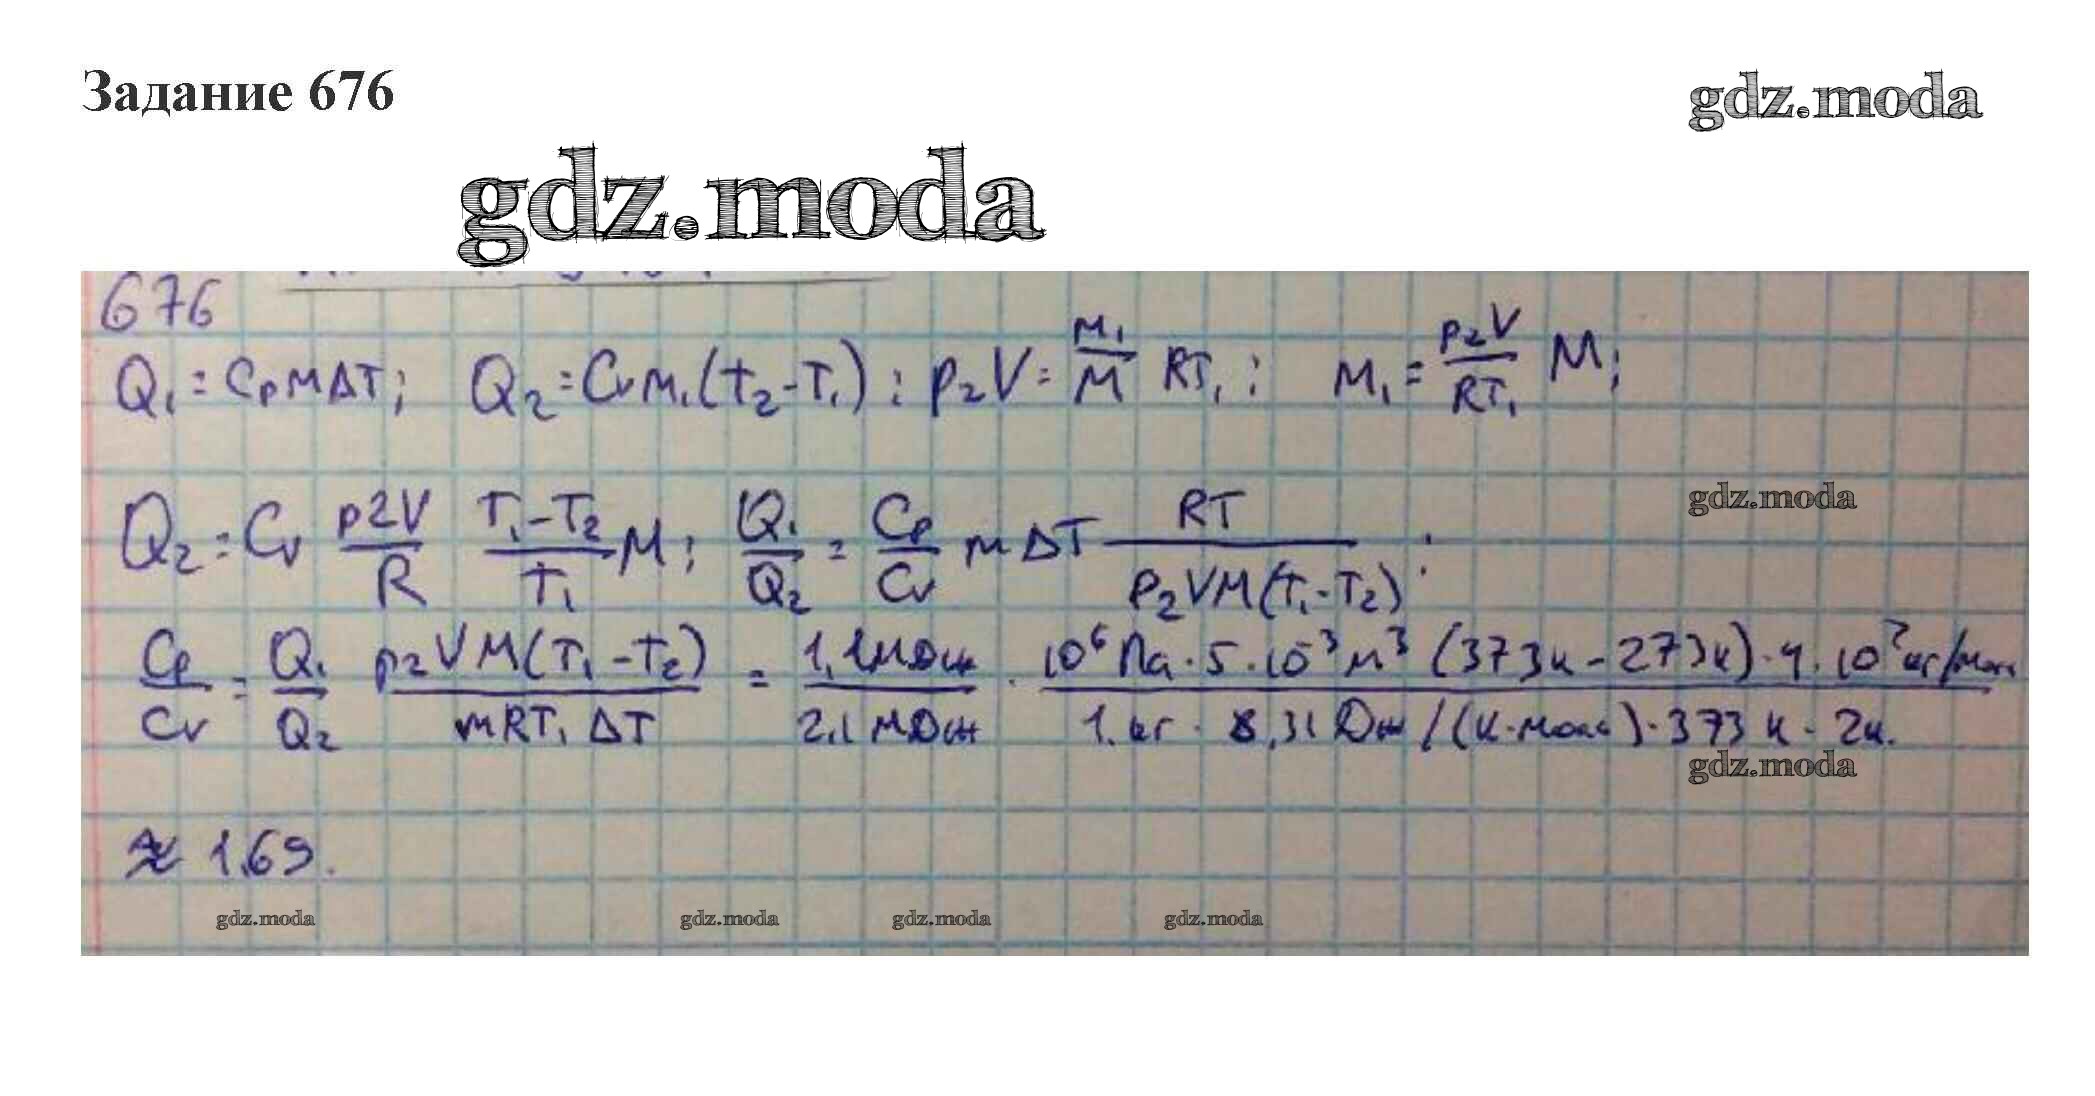 Задание 676
gdz.moda
gdz.moda
676
Q₁ = Cp m ΔT; Q₂ = Cv m₁ (t₂ - T₁); p₂V = m₁/M RT₁; m₁ = p₂V/RT₁ M;
gdz.moda
Q₂ = Cv p2V/R T₁-T₂/T₁ M; Q₁/Q₂ = Cp/Cv m ΔT RT/p₂VM(T₁-T₂);
Cp/Cv = Q₁/Q₂ p₂VM(T₁-T₂)/mRT₁ ΔT = 1,1мДж/2,1 мДж · 10⁶ Па·5·10⁻³м³ (373к-273к)·4·10⁻²кг/моль/1.кг · 8,31 Дж/(к·моль)·373 к · 2к.
gdz.moda
≈ 1,69.
gdz.moda gdz.moda gdz.moda gdz.moda